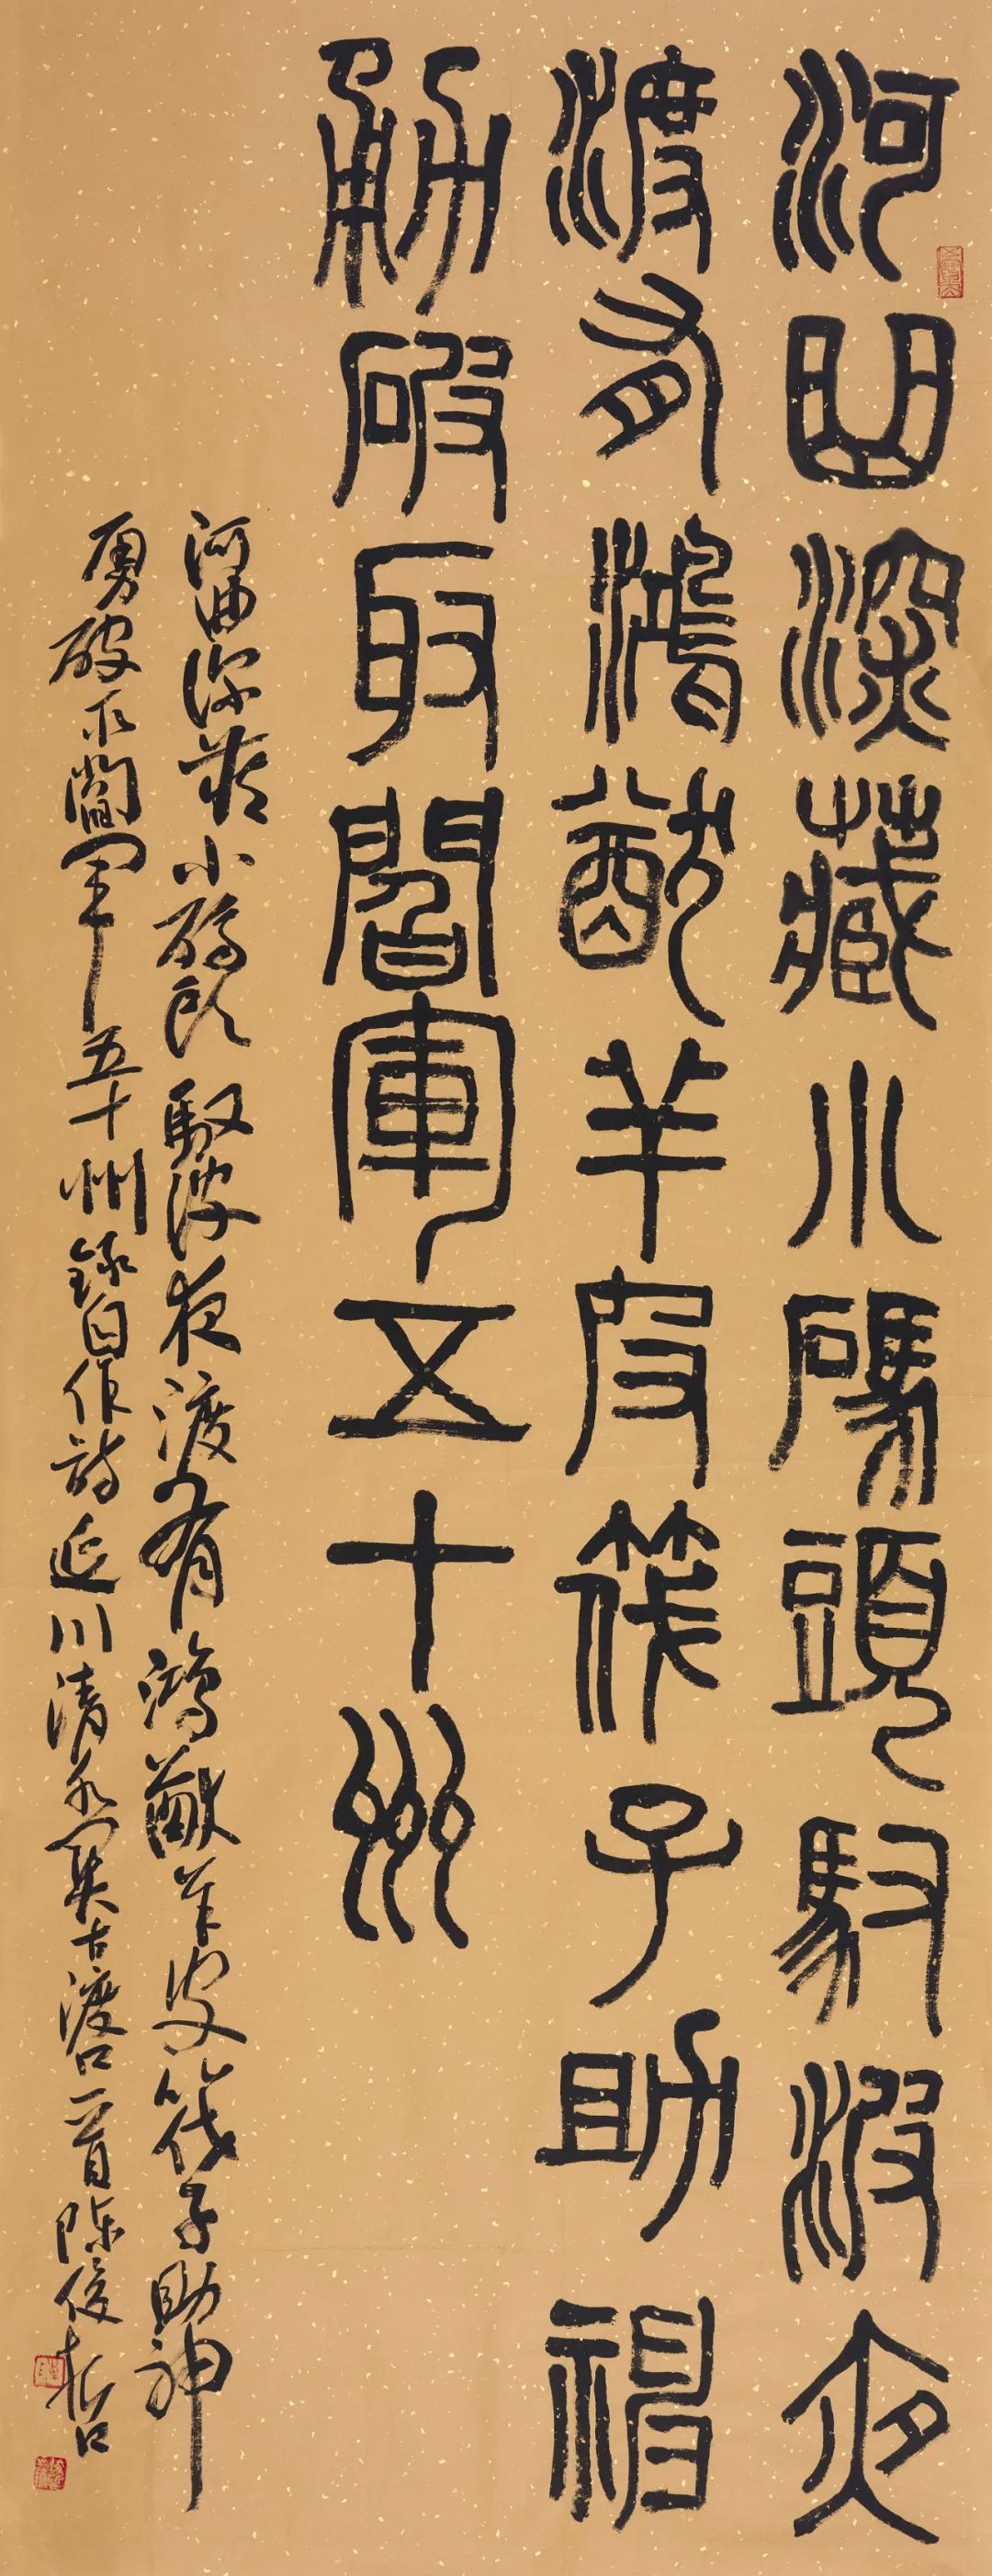 河曲深藏小碼頭馭波夜
渡有鴻猷羊皮筏子助神
勇破取閻軍五十州
河曲深藏小碼頭馭波夜渡有鴻猷羊皮筏子助神
勇破取閻軍五十州錄自作詩延川清水關古渡口一首陳俊哲